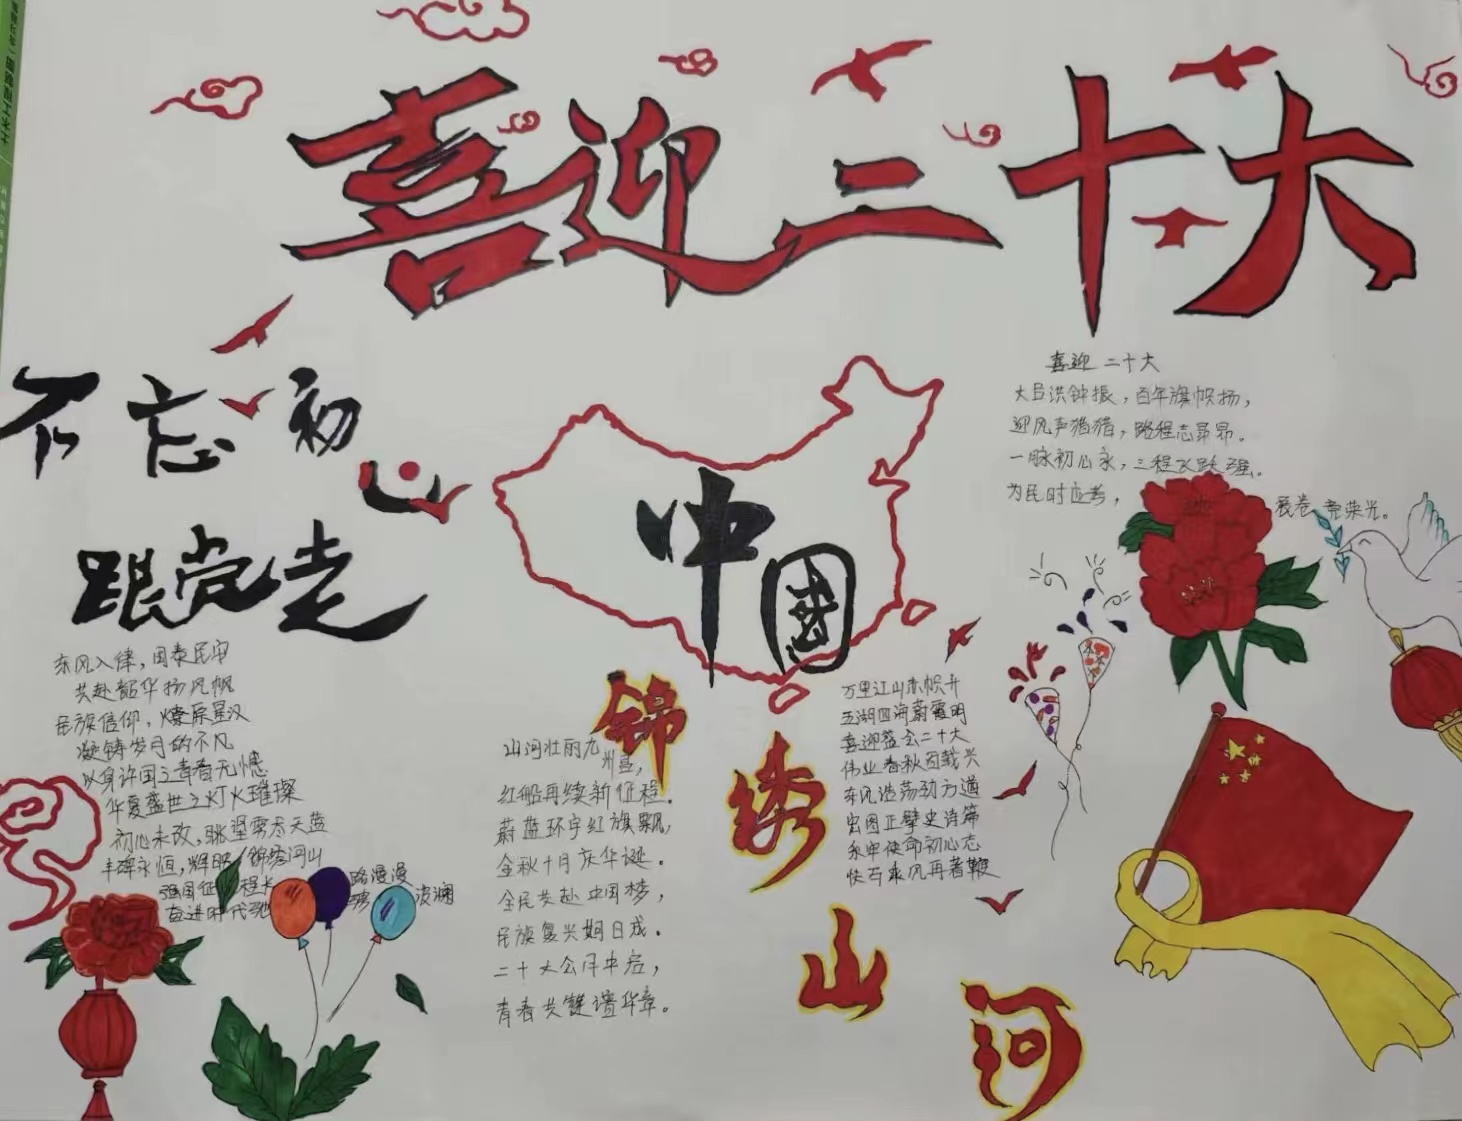 喜迎二十大
不忘初心
跟党走
中国
锦绣山河
喜迎二十大
大吕洪钟振，百年旗帜扬，
迎风声猎猎，路程志昂昂。
一脉初心永，三程飞跃强。
为民时应考，展卷亮荣光。
东风入律，国泰民安
共赴韶华扬风帆
民族信仰，燎原星汉
凝铸岁月的不凡
以身许国之青春无憾
华夏盛世之灯火璀璨
初心未改，眺望霁尽天蓝
丰碑永恒，辉映锦绣河山
强国征程长路漫漫
奋进时代 波澜
山河壮丽九州昌，
红船再续新征程。
蔚蓝环宇红旗飘，
金秋十月庆华诞。
全民共赴中国梦，
民族复兴 日成。
二十大会 中启，
青春共 谱华章。
万里江山赤帜升
五湖四海蔚霞明
喜迎盛会二十大
伟业春秋百载兴
东风浩荡动方遒
宏图正擘史诗篇
永牢使命初心志
快马乘风再着鞭